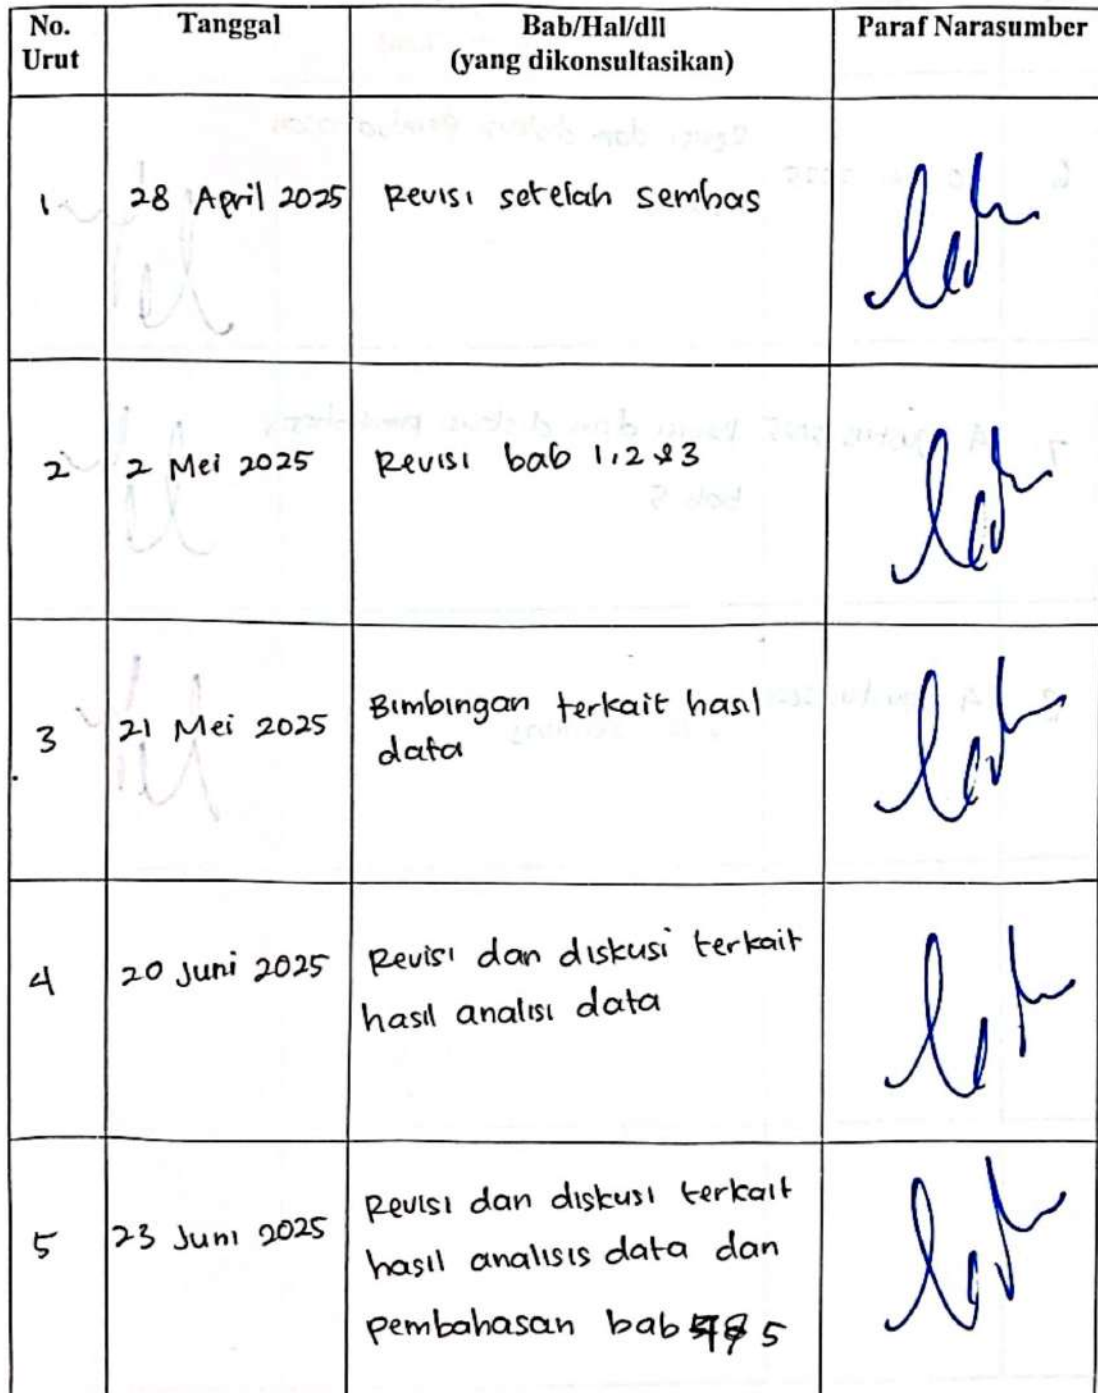 No. Urut
Tanggal
Bab/Hal/dll
(yang dikonsultasikan)
Paraf Narasumber
1
28 April 2025
Revisi setelah sembas
2
2 Mei 2025
Revisi bab 1,2 & 3
3
21 Mei 2025
Bimbingan terkait hasil
data
4
20 Juni 2025
Revisi dan diskusi terkait
hasil analisi data
5
23 Juni 2025
Revisi dan diskusi terkait
hasil analisis data dan
pembahasan bab 5